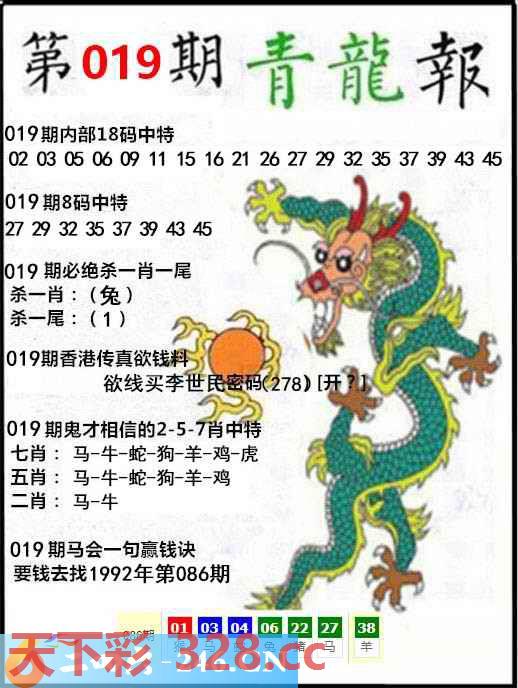 第019期青龍報
019期内部18码中特
02 03 05 06 09 11 15 16 21 26 27 29 32 35 37 39 43 45
019期8码中特
27 29 32 35 37 39 43 45
019 期必绝杀一肖一尾
杀一肖：（兔）
杀一尾：（1）
019期香港传真欲钱料
欲线买李世民密码(278)[开？]
019期鬼才相信的2-5-7肖中特
七肖： 马-牛-蛇-狗-羊-鸡-虎
五肖： 马-牛-蛇-狗-羊-鸡
二肖： 马-牛
019期马会一句赢钱诀
要钱去找1992年第086期
01 03 04 06 22 27 38
猴 马 兔 猪 马 羊
天下彩-328.cc